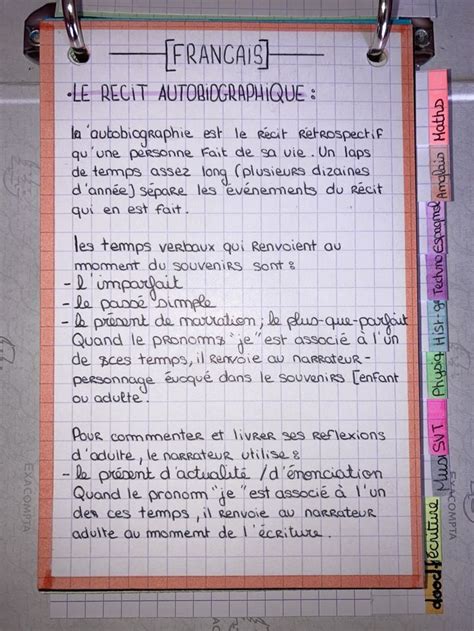 [FRANCAIS]
• LE RECIT AUTOBIOGRAPHIQUE :
la 'autobiographie est le récit rétrospectif
qu'une personne fait de sa vie. Un laps
de temps assez long (plusieurs dizaines
d'année) sépare les événements du récit
qui en est fait.
les temps verbaux qui renvoient au
moment du souvenirs sont :
- l'imparfait
- le passé simple
- le présent de narration ; le plus-que-parfait
Quand le pronoms "je" est associé à l'un
de sces temps, il renvoie au narrateur-
personnage évoqué dans le souvenirs [enfant
ou adulte.
Pour commenter et livrer ses reflexions
d'adulte, le narrateur utilise :
- le présent d'actualité / d'énonciation
Quand le pronom "je" est associé à l'un
des ces temps, il renvoie au narrateur
adulte au moment de l'écriture.
Maths
Anglais
Espagnol
Techno
Hist-g
Physiq
SVT
Musi
écriture
EXACOMPTA
EXACOMPTA